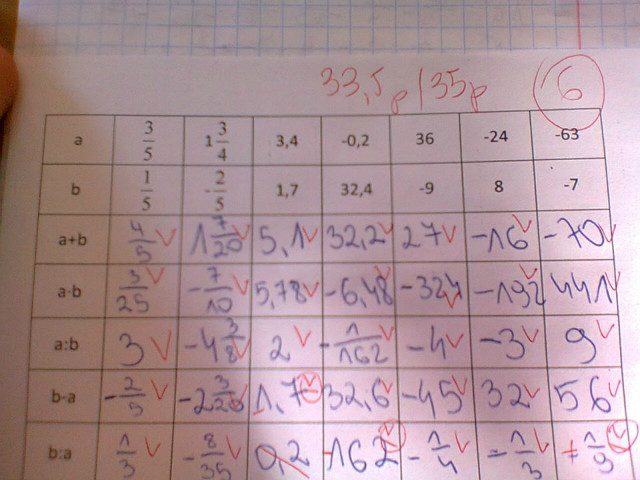 33,5p/35p 6
a 3/5 1 3/4 3,4 -0,2 36 -24 -63
b 1/5 -2/5 1,7 32,4 -9 8 -7
a+b 4/5 1 7/20 5,1 32,2 27 -16 -70
a·b 3/25 -7/10 5,78 -6,48 -324 -192 441
a:b 3 -4 3/8 2 -1/162 -4 -3 9
b-a -2/5 -2 3/20 1,7 32,6 -45 32 56
b:a 1/3 -8/35 0,2 -162 -1/4 -1/3 +1/9